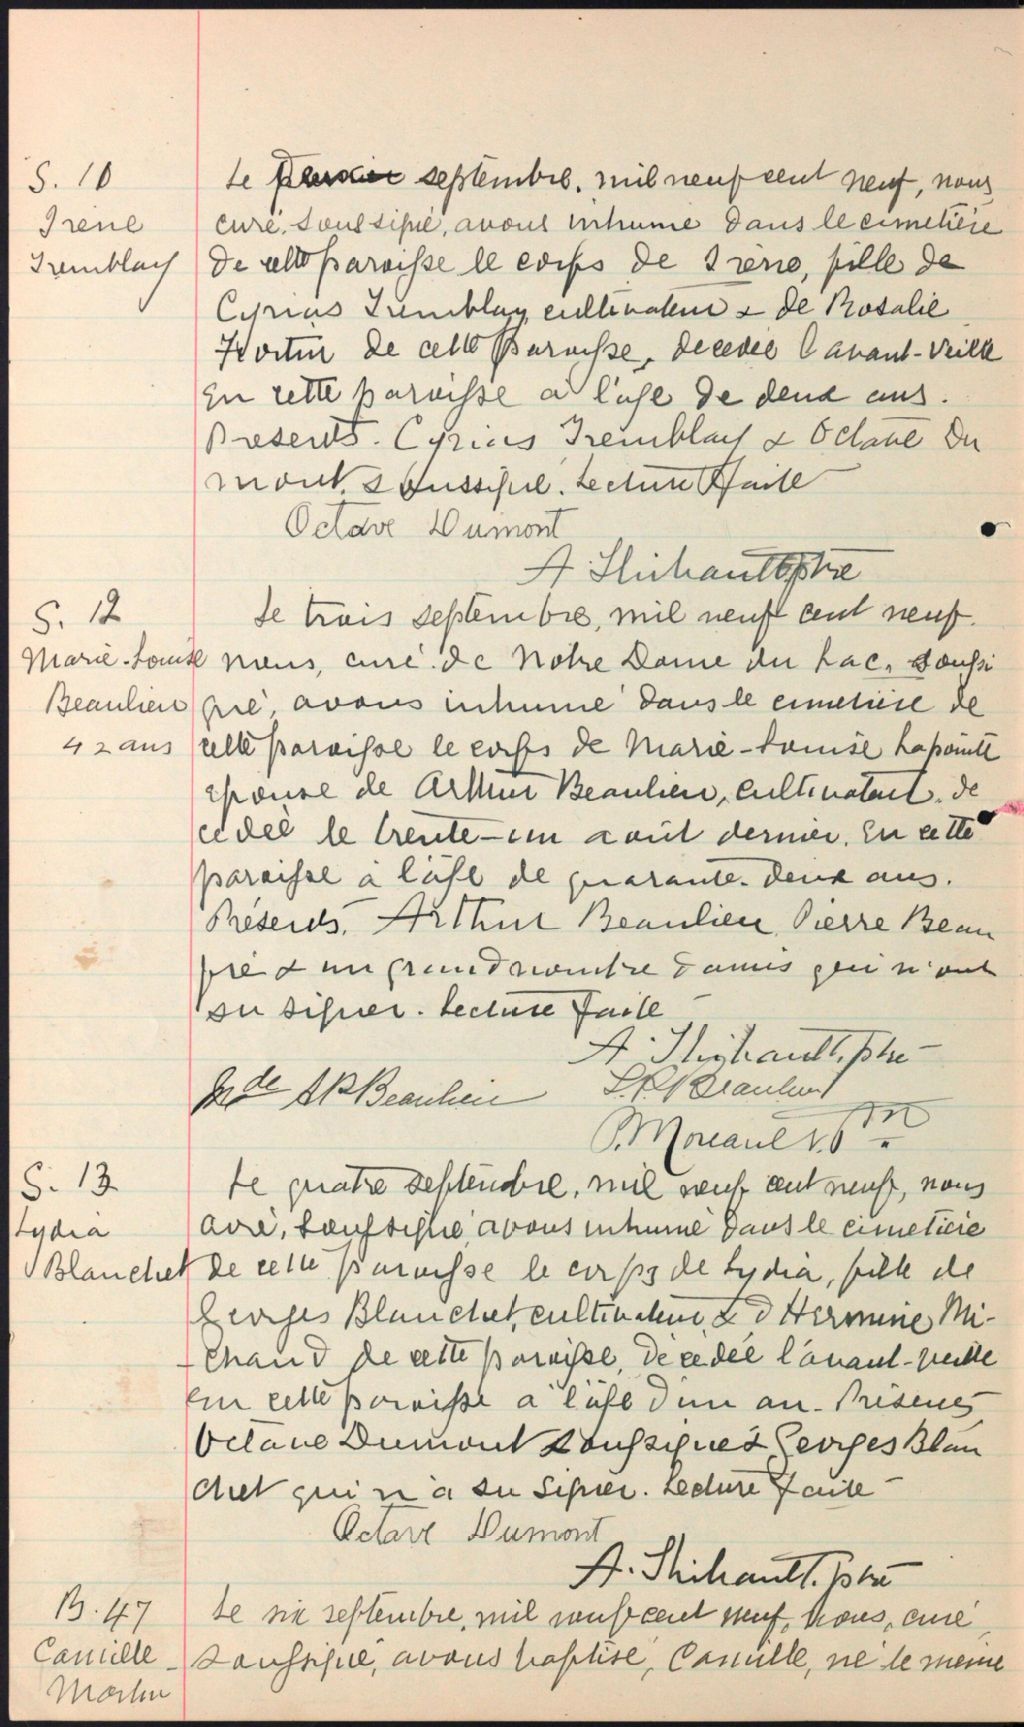 S. 10
Irène
Tremblay
Le premier septembre, mil neuf cent neuf, nous
curé, soussigné, avons inhumé dans le cimetière
de cette paroisse le corps de Irène, fille de
Cyrias Tremblay cultivateur & de Rosalie
Fortin de cette paroisse, décédée l'avant-veille
En cette paroisse à l'âge de deux ans.
Présents. Cyrias Tremblay & Octave Du
mont, soussigné. Lecture faite
Octave Dumont
A. Thibault ptre
S. 12
Marie-Louise
Beaulieu
42 ans
Le trois septembre, mil neuf cent neuf.
nous, curé de Notre Dame du Lac, soussi
gné, avons inhumé dans le cimetière de
cette paroisse le corps de Marie-Louise Lapointe
épouse de Arthur Beaulieu, cultivateur, dé
cédée le trente-un août dernier, En cette
paroisse à l'âge de quarante-deux ans.
Présents, Arthur Beaulieu, Pierre Beau
pré & un grand nombre d'amis qui n'ont
su signer. Lecture faite
A. Thibault, ptre
Mde A B Beaulieu
Beaulieu
P. Moreault
S. 13
Lydia
Blanchet
Le quatre septembre, mil neuf cent neuf, nous
curé, soussigné, avons inhumé dans le cimetière
de cette paroisse le corps de Lydia, fille de
Georges Blanchet, cultivateur, & d'Hermine Mi-
chaud de cette paroisse, décédée l'avant-veille
En cette paroisse à l'âge d'un an. Présents
Octave Dumont soussigné & Georges Blan
chet qui n'a su signer. Lecture faite
Octave Dumont
A. Thibault, ptre
B. 47
Camille
Martin
Le six septembre, mil neuf cent neuf, nous, curé
soussigné, avons baptisé, Camille, né le même